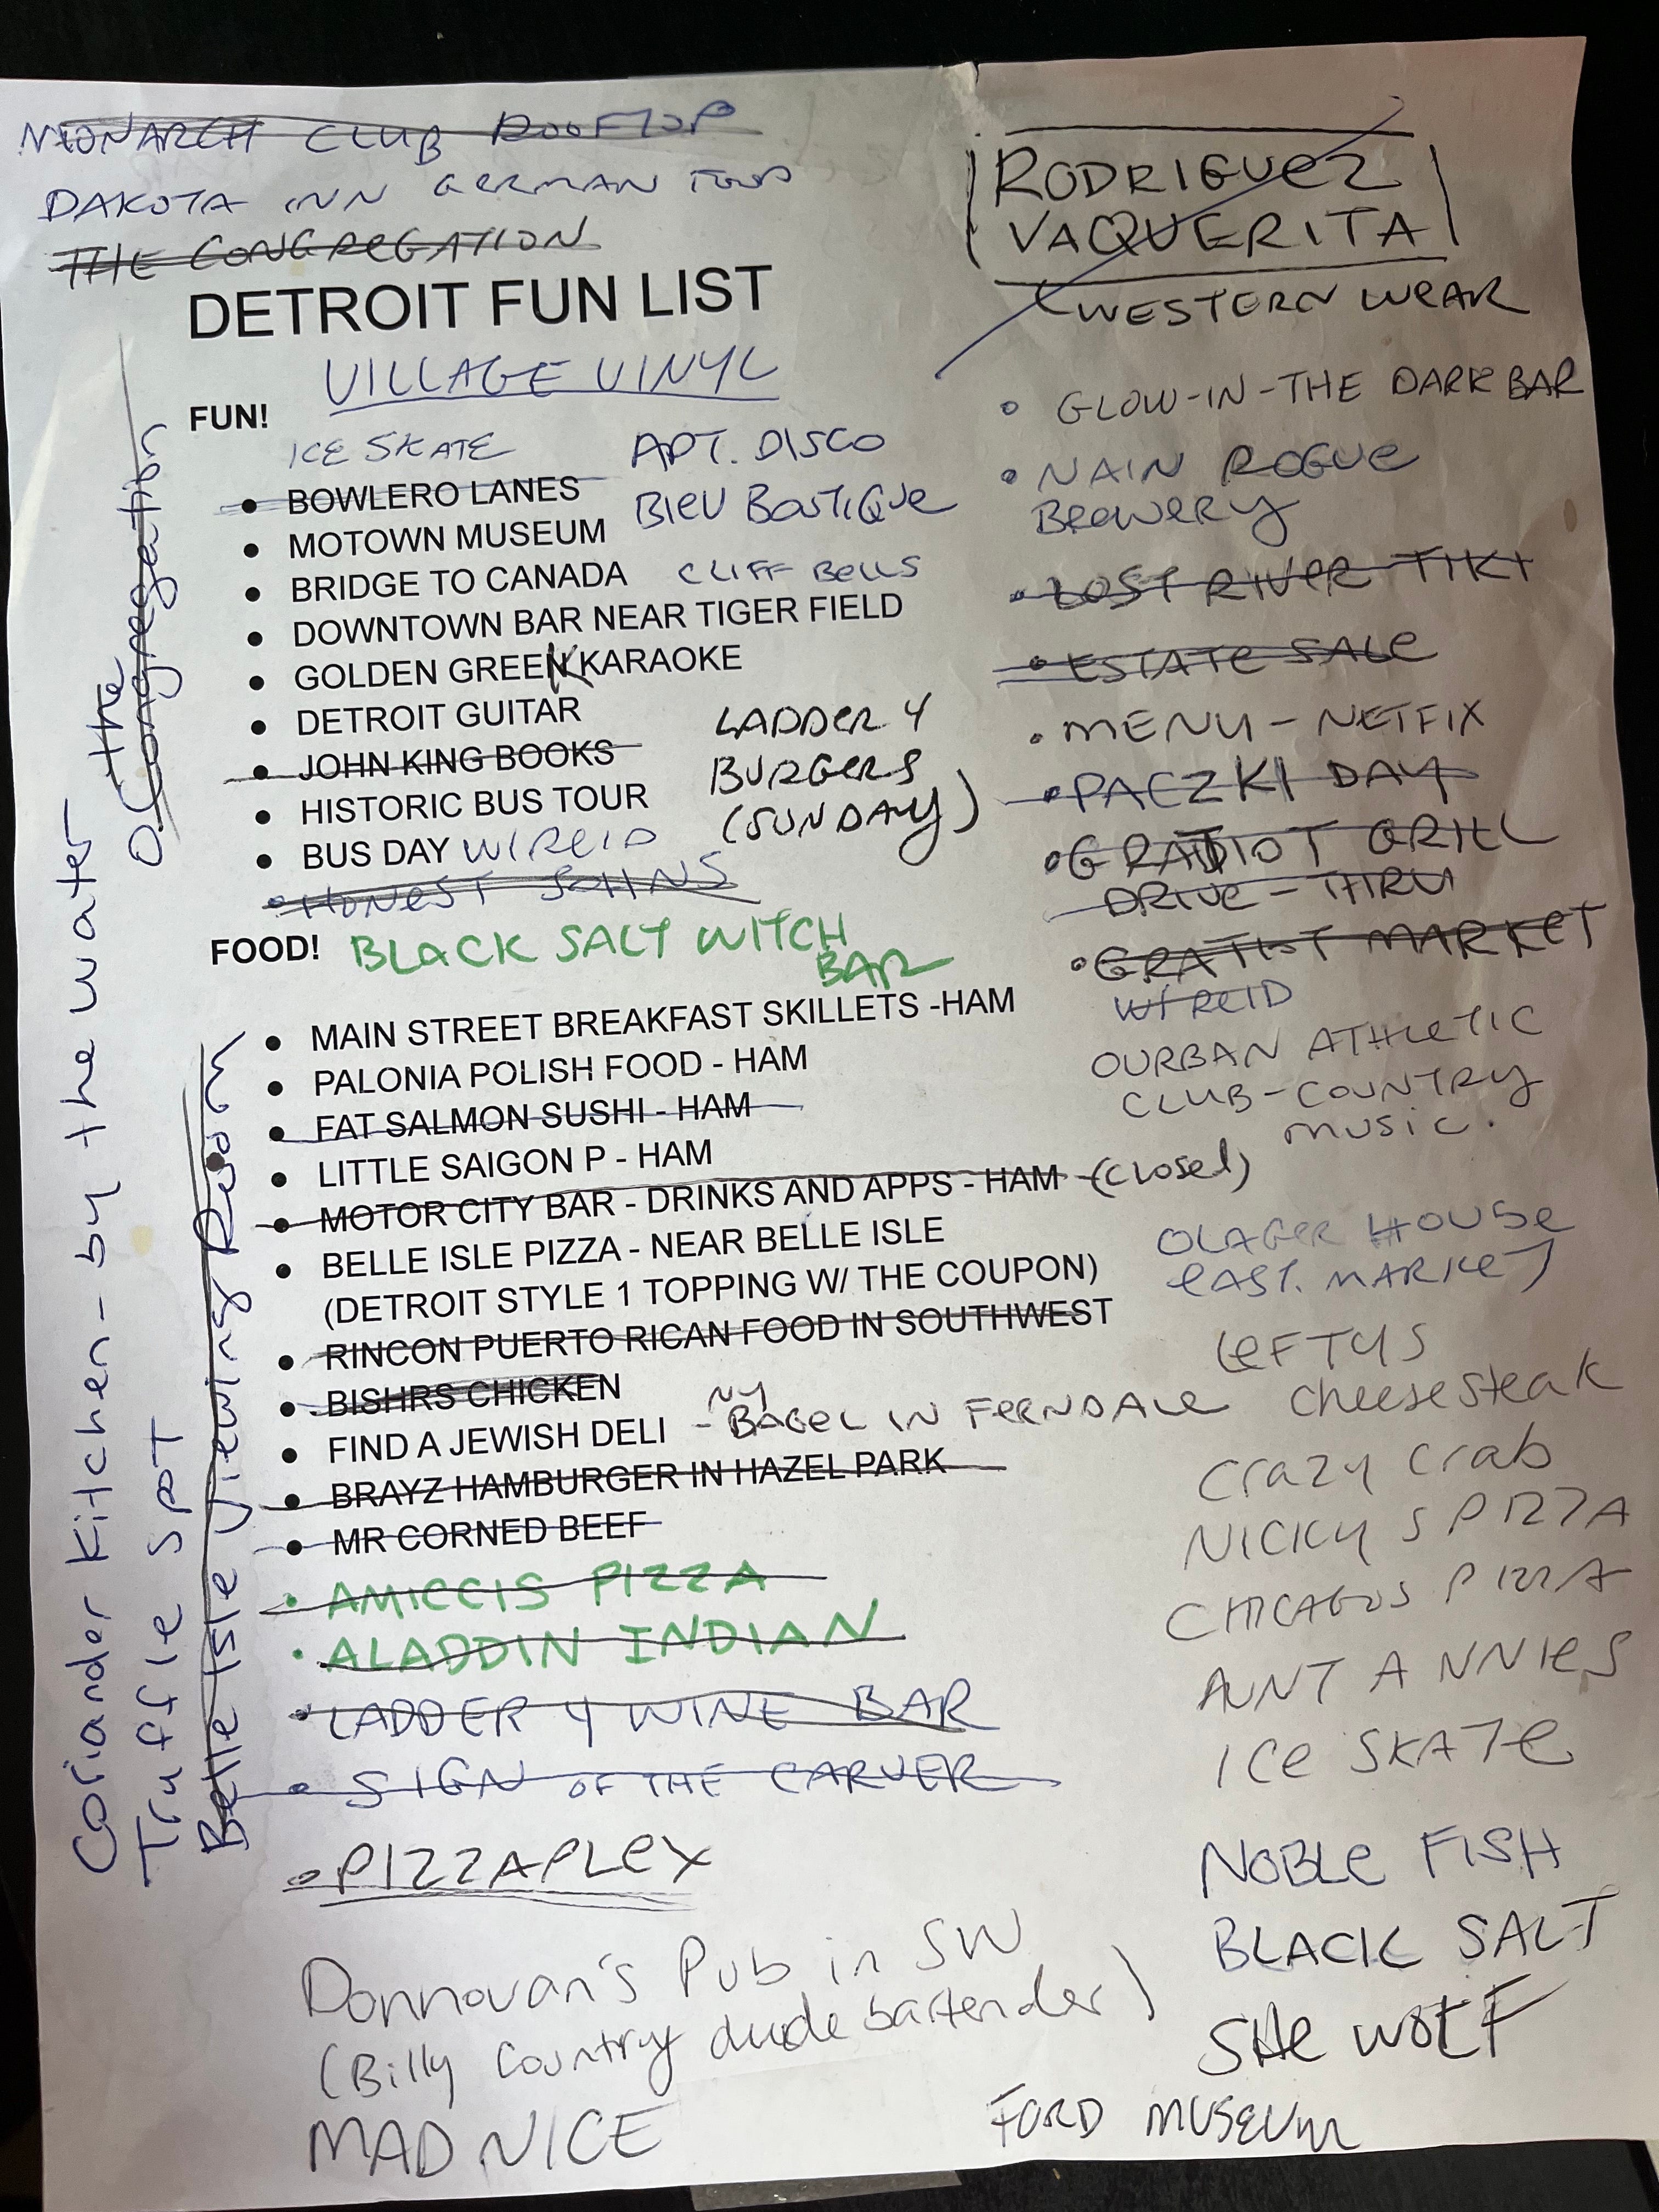 MONARCH CLUB ROOFTOP
DAKOTA INN GERMAN FOOD
THE CONGREGATION
DETROIT FUN LIST
VILLAGE VINYL
FUN!
ICE SKATE
APT. DISCO
• BOWLERO LANES
BIEU BOUTIQUE
• MOTOWN MUSEUM
• BRIDGE TO CANADA
CLIFF BELLS
• DOWNTOWN BAR NEAR TIGER FIELD
• GOLDEN GREEK KARAOKE
• DETROIT GUITAR
• JOHN KING BOOKS
• HISTORIC BUS TOUR
• BUS DAY W/REID
• HONEST JOHNS
LADDER 4
BURGERS
(SUNDAY)
FOOD!
BLACK SALT WITCH
BAR
• MAIN STREET BREAKFAST SKILLETS -HAM
• PALONIA POLISH FOOD - HAM
• FAT SALMON SUSHI - HAM
• LITTLE SAIGON P - HAM
• MOTOR CITY BAR - DRINKS AND APPS - HAM -(closed)
• BELLE ISLE PIZZA - NEAR BELLE ISLE
(DETROIT STYLE 1 TOPPING W/ THE COUPON)
• RINCON PUERTO RICAN FOOD IN SOUTHWEST
• BISHRS CHICKEN
• FIND A JEWISH DELI - NY BAGEL IN FERNDALE
• BRAYZ HAMBURGER IN HAZEL PARK
• MR CORNED BEEF
• AMICCIS PIZZA
• ALADDIN INDIAN
• LADDER 4 WINE BAR
• SIGN OF THE CARVER
• PIZZAPLEX
Donnovan's Pub in SW
(Billy Country dude bartender)
MAD NICE
RODRIGUEZ
VAQUERITA
WESTERN WEAR
• GLOW-IN-THE DARK BAR
• NAIN ROGUE
BREWERY
• LOST RIVER TIKI
• ESTATE SALE
• MENU - NETFIX
• PACZKI DAY
• GRATIOT GRILL
DRIVE-THRU
• GRATIOT MARKET
W/ REID
OURBAN ATHLETIC
CLUB-COUNTRY
MUSIC.
OLAGER HOUSE
EAST. MARKET
LEFTYS
Cheesesteak
Crazy Crab
NICKY S PIZZA
CHICAGOS PIZZA
AUNT ANNIES
ICE SKATE
NOBLE FISH
BLACK SALT
SHE WOLF
FORD MUSEUM
the
O Congregation
Coriander Kitchen - by the water
Truffle SPOT
Belle Isle Viewing Room